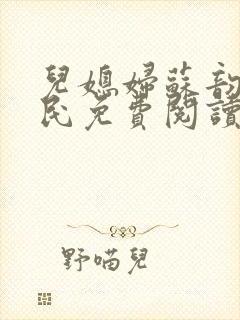 兒媳婦蘇韵
民免費閱讀
野喵兒